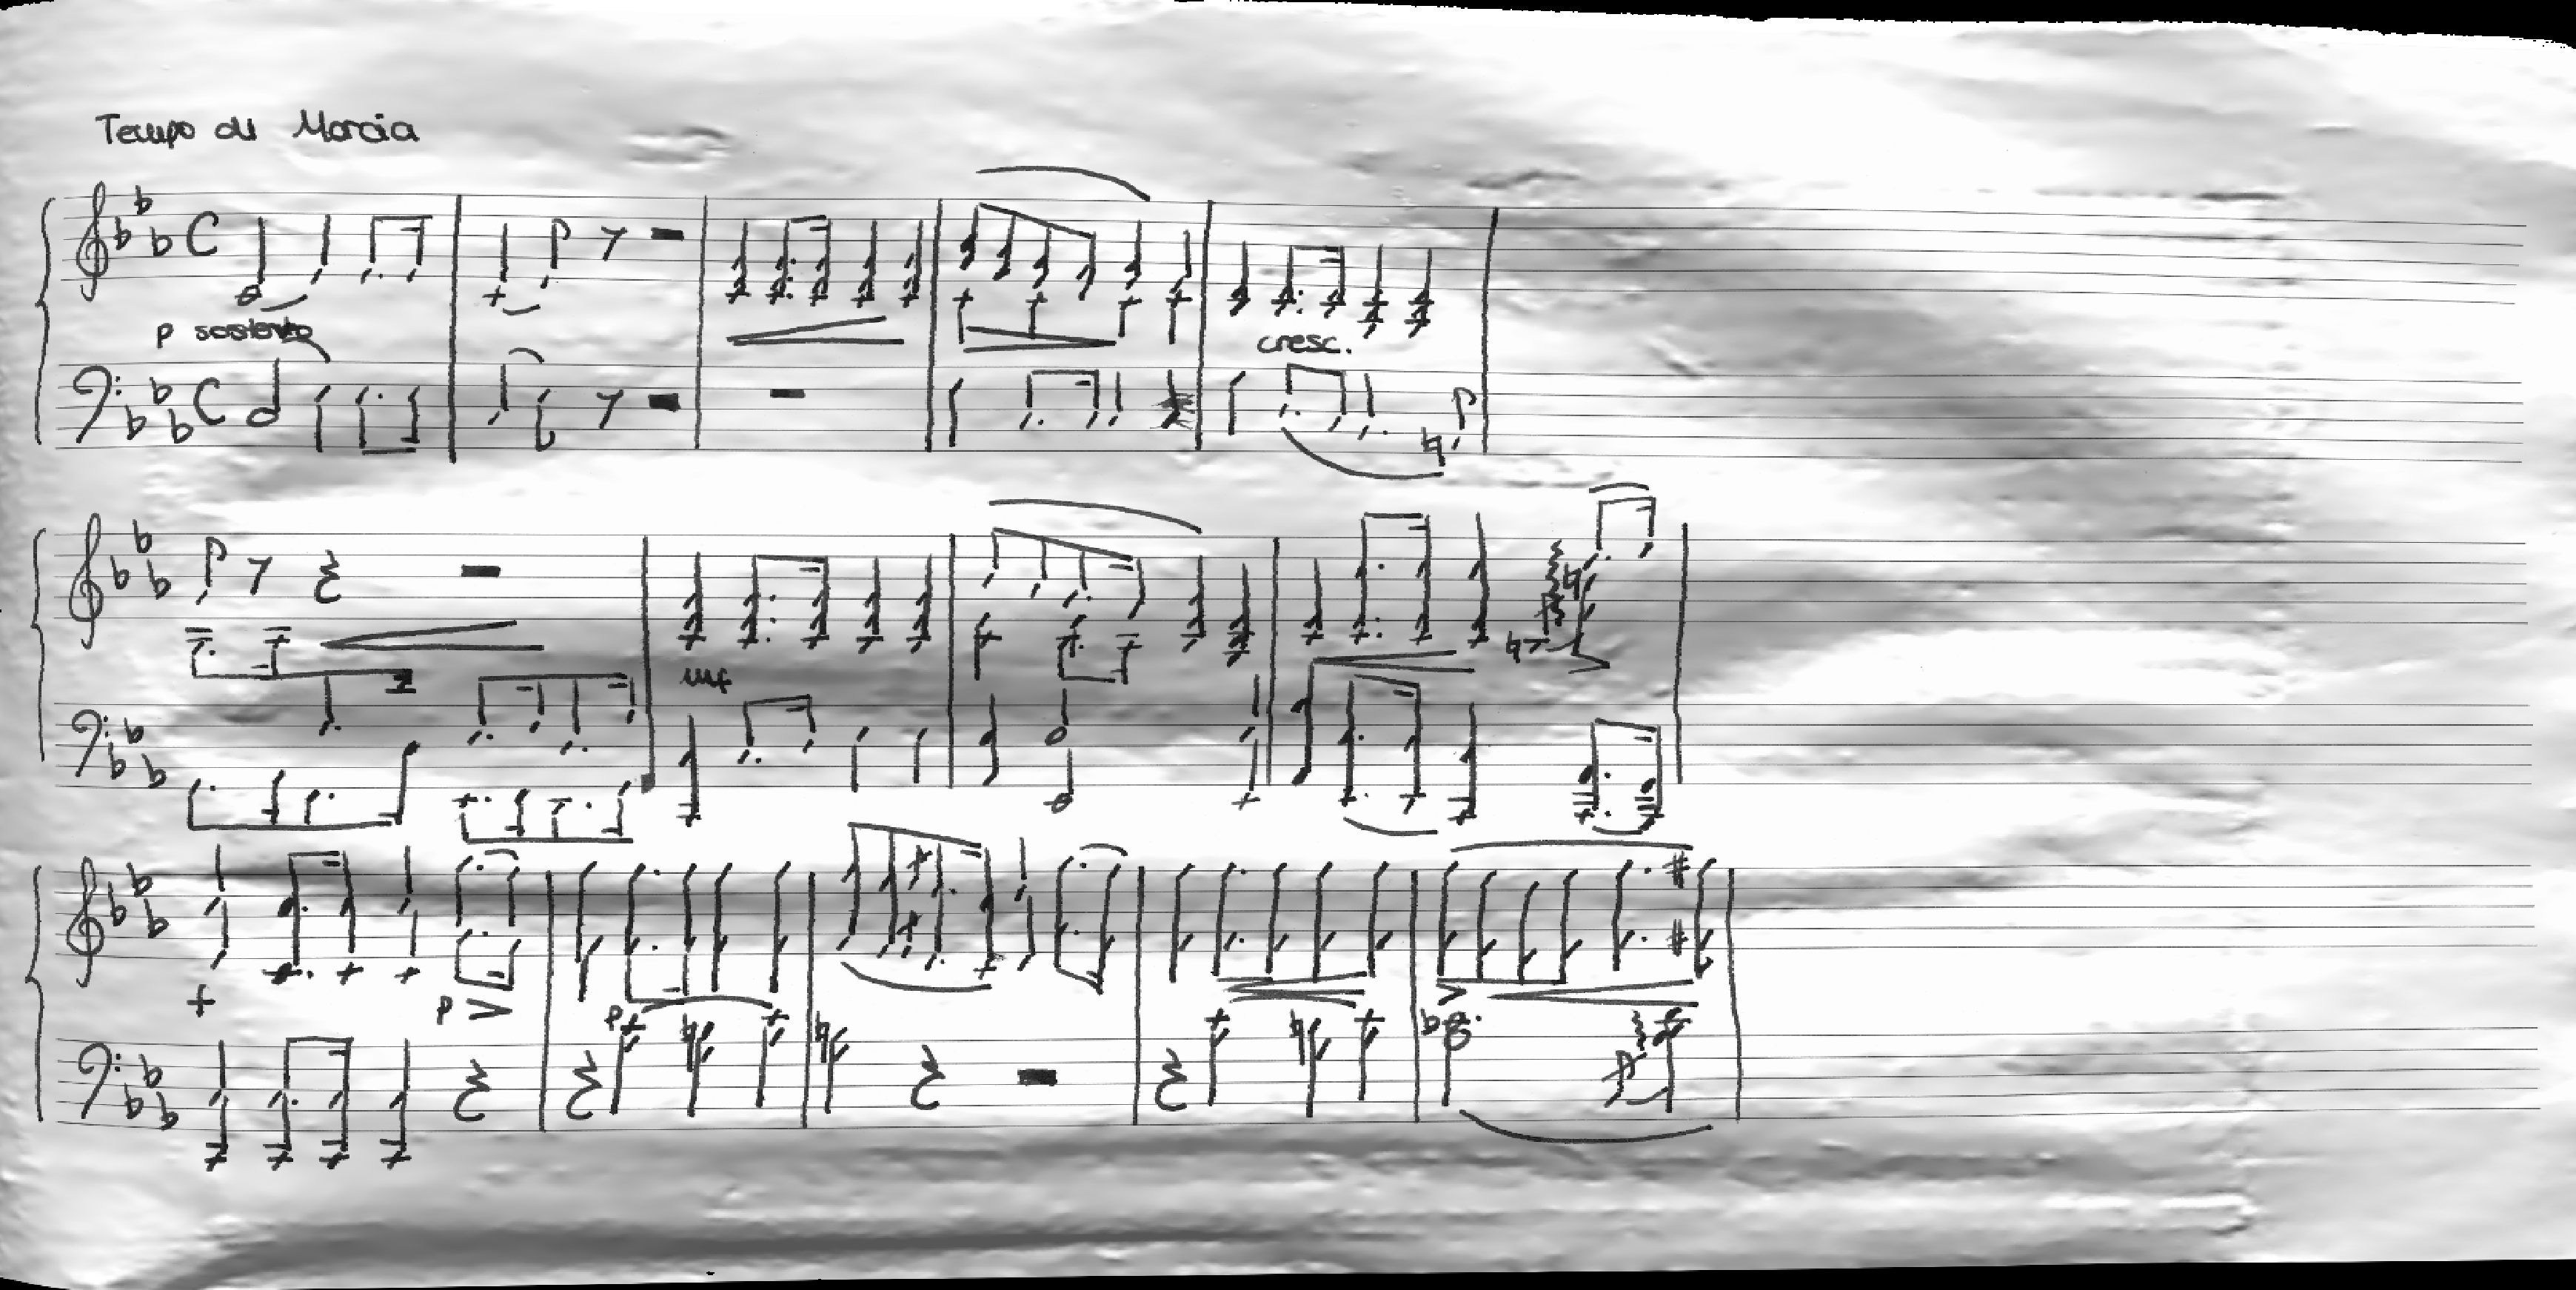 Tempo di Marcia
p sostenuto
cresc.
mf
p
p